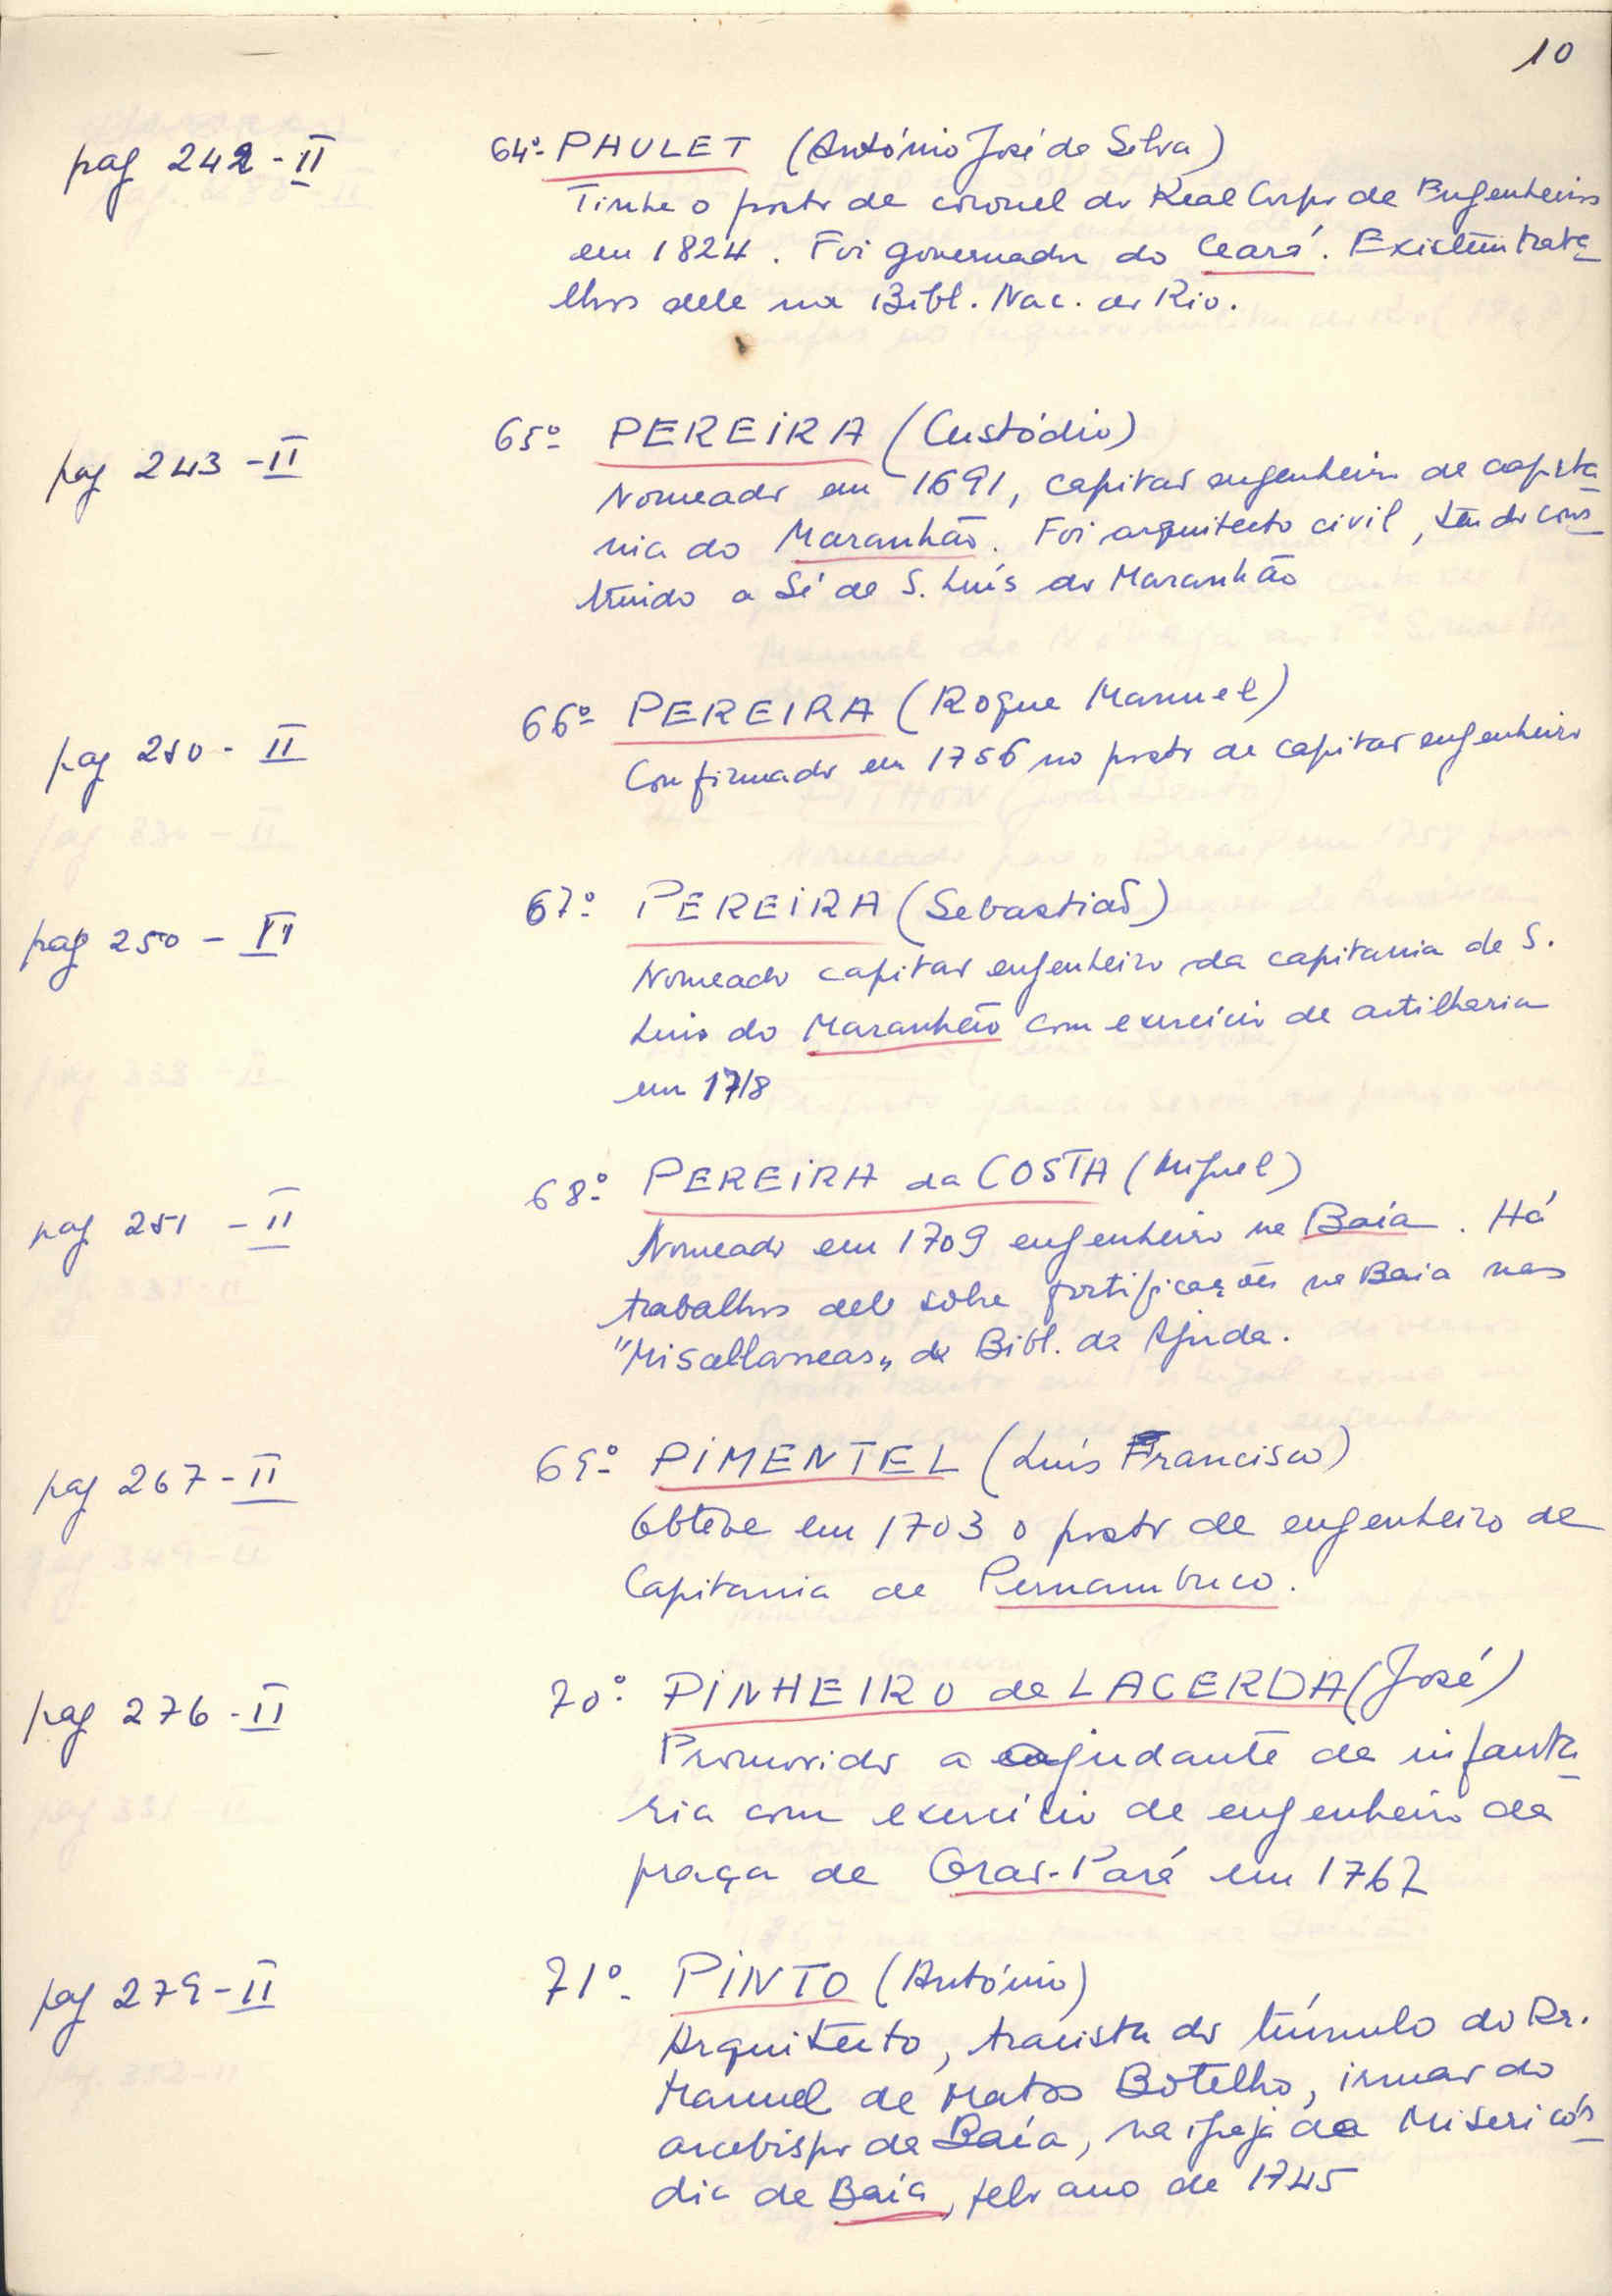 10
pag 242 - II
64º - PAULET (António José da Silva)
Tinha o posto de coronel do Real Corpo de Engenheiros
em 1824. Foi governador do Ceará. Existem traba-
lhos dele na Bibl. Nac. do Rio.
pag 243 - II
65º PEREIRA (Custódio)
Nomeado em 1691, capitão engenheiro da capita-
nia do Maranhão. Foi arquitecto civil, tendo cons-
truido a Sé de S. Luís do Maranhão
pag 250 - II
66º PEREIRA (Roque Manuel)
Confirmado em 1756 no posto de capitão engenheiro
pag 250 - II
67º PEREIRA (Sebastião)
Nomeado capitão engenheiro da capitania de S.
Luis do Maranhão com exercício de artilharia
em 1718
pag 251 - II
68º PEREIRA da COSTA (Miguel)
Nomeado em 1709 engenheiro na Baía. Há
trabalhos dele sobre fortificações na Baia nas
"Miscellaneas" da Bibl. da Ajuda.
pag 267 - II
69º PIMENTEL (Luís Francisco)
Obteve em 1703 o posto de engenheiro da
Capitania de Pernambuco.
pag 276 - II
70º PINHEIRO de LACERDA (José)
Promovido a ajudante de infanta-
ria com exercício de engenheiro da
praça de Grão-Pará em 1762
pag 279 - II
71º - PINTO (António)
Arquitecto, tracista do túmulo do Dr.
Manuel de Matos Botelho, irmão do
arcebispo da Baía, na igreja da Misericór-
dia da Baía, pelo ano de 1745